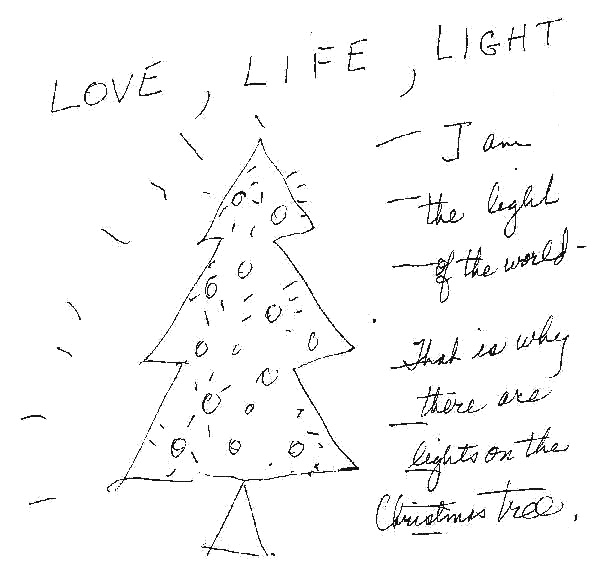 LOVE, LIFE, LIGHT
I am
the light
of the world -
That is why
there are
lights on the
Christmas tree.